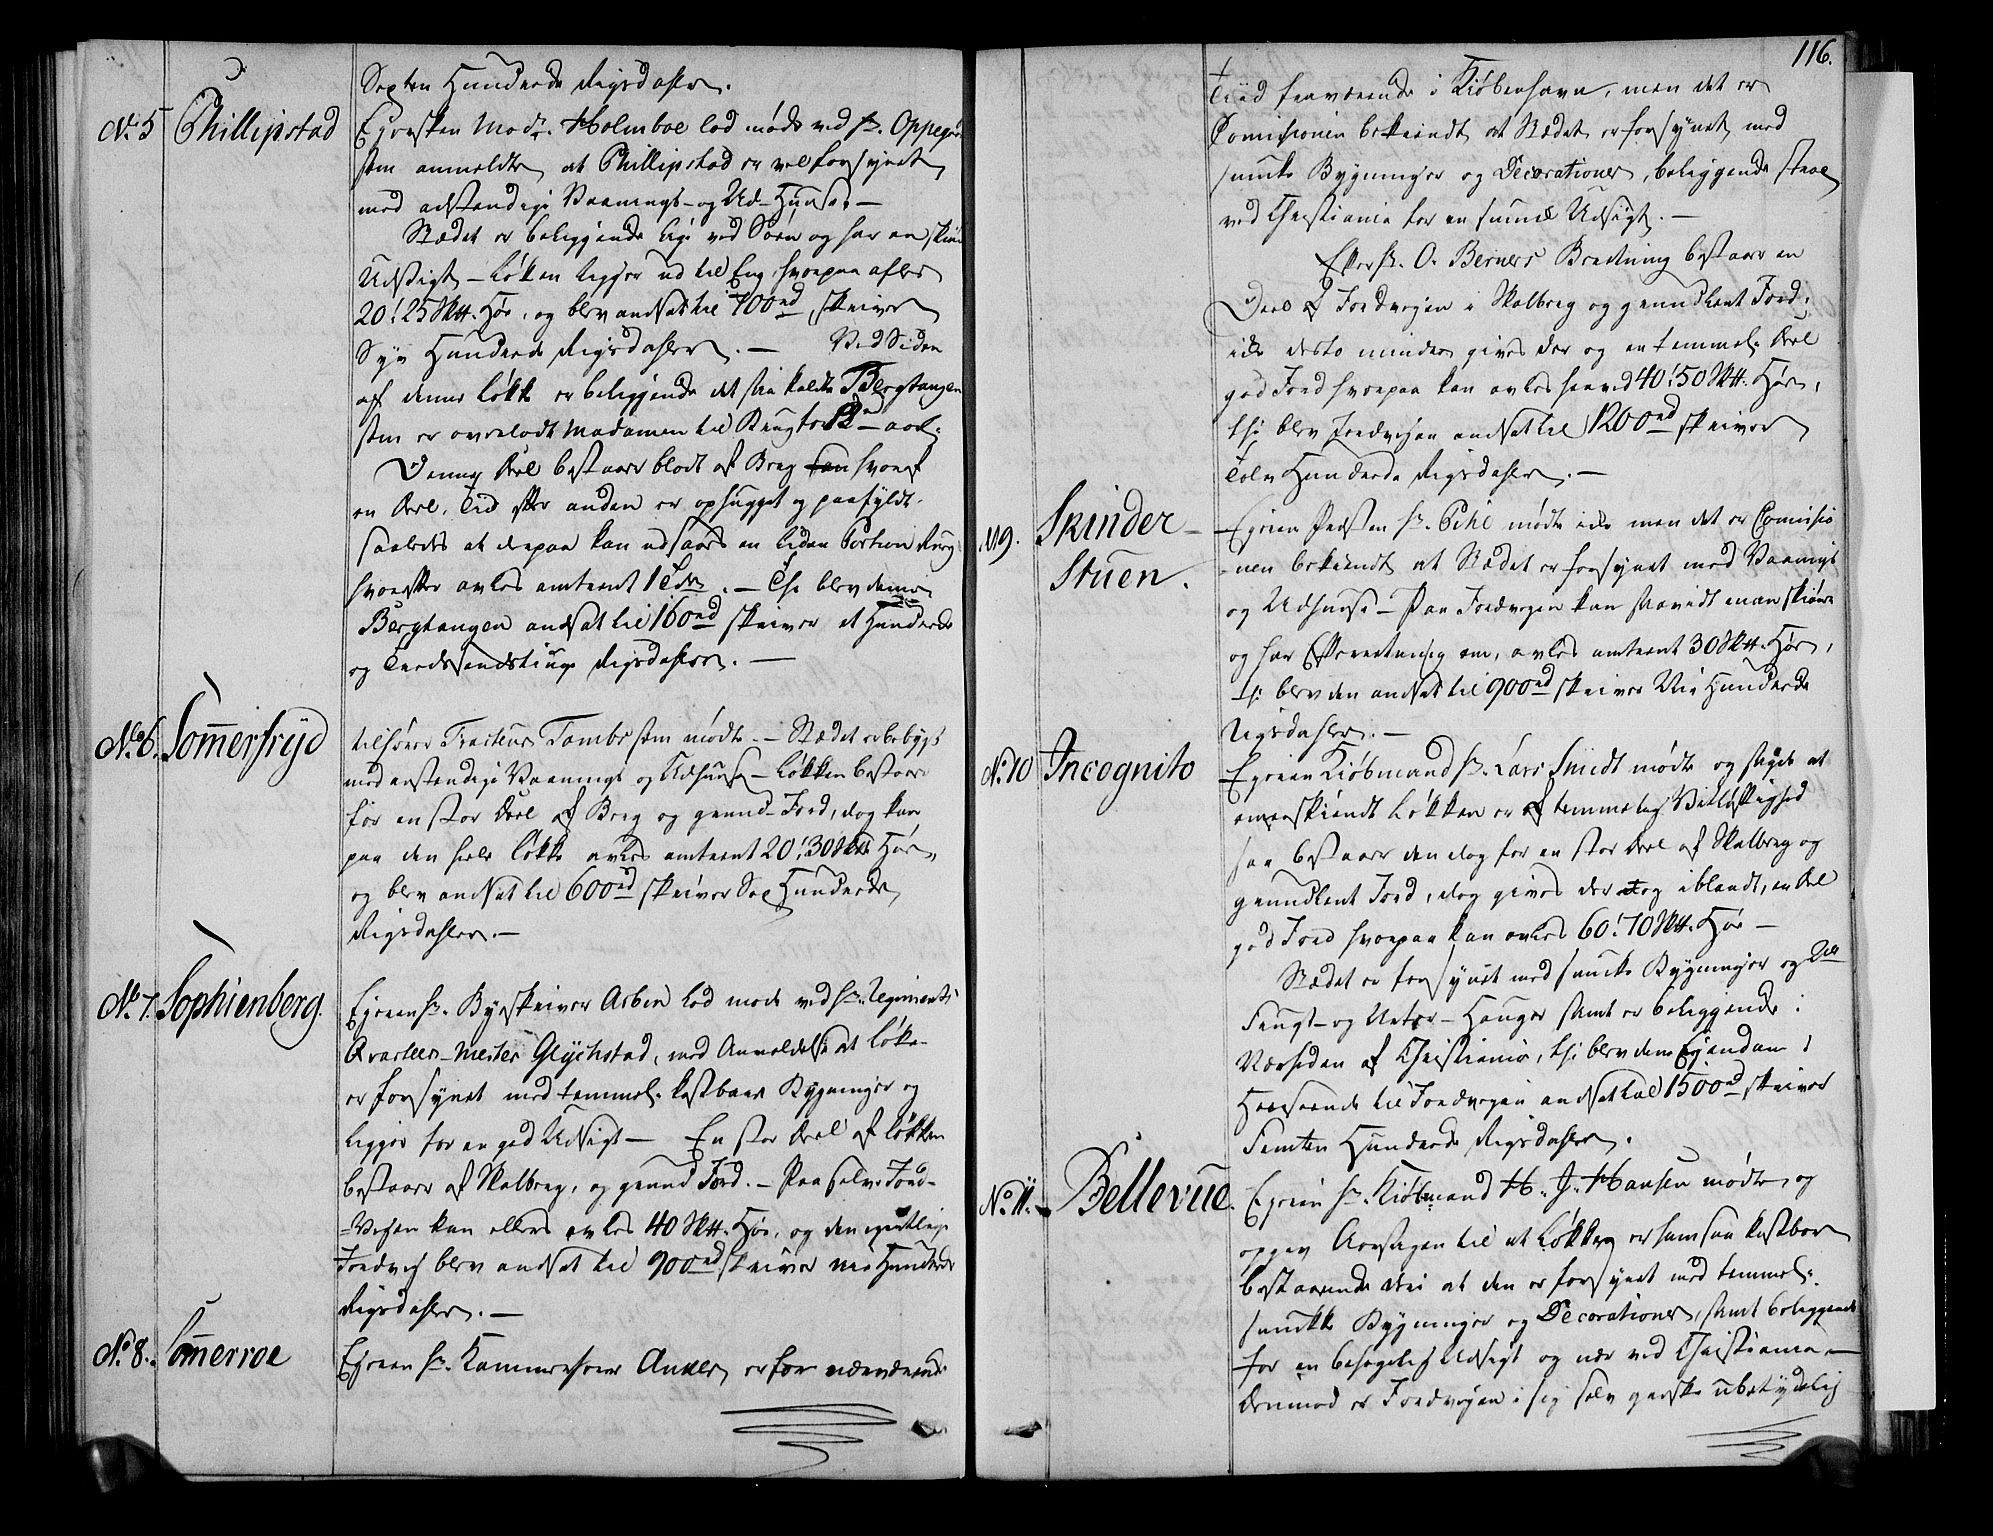 Sexten Hundrede Rigsdaler.
No 5 Phillipstad
Ejersken Mad. Holmboe lod møde ved Hr. Oppegaard
som anmeldte, at Phillipstad er vel forsynet
med anstændige Vaanings- og Ud-Huuse. —
Stædet er beliggende lige ved Søen og har en skiøn
Udsigt — Løkken ligger ud til Eng, hvorpaa avles
20 à 25 Sktt. Høe, og blev andsat til 700 rd, skriver
Syv Hundrede Rigsdaler. — Ved Siden
af denne Løkke er beliggende det saa kaldte Bergtangen
som er overladt Madamen til Brug for 12 rd aarl:
Denne Deel bestaaer blodt af Berg hvoraf
en Deel, Tid efter anden er ophugget og paafyldt
saaledes at derpaa kan udsaaes en liden Portion Rug
hvorefter avles omtrent 1 Tde. — Thi blev denne
Bergtangen andsat til 160 rd skriver et Hundrede
og Tredsindstiuge Rigsdaler. —
No 6. Sommerfryd
tilhører Tracteur Tambs som mødte. — Stædet er bebygt
med anstændige Vaanings og Udhuuse — Løkken bestaaer
for en stor Deel af Berg og grund-Jord, dog kan
paa den hele Løkke avles omtrent 20 à 30 Sktt Høe,
og blev andsat til 600 rd skriver Sex Hundrede
Rigsdaler. —
No 7. Sophienberg.
Ejeren Hr. Byeskriver Arbin lod møde ved Hr. Regiments
Qvarteer-Mester Glychstad, med Anmeldelse at Løkken
er forsynet med temmel. kostbare Bygninger og
ligger for en god Udsigt — En stor Deel af Løkken
bestaaer af Skalberg, og grund Jord. — Paa selve Jord-
-Vejen kan ellers avles 40 Sktt. Høe, og den egentlige
Jordvej blev andsat til 900 rd skriver nie Hundrede
Rigsdaler. —
No 8. Sommerroe
Ejeren Hr. Kammerherre Anker, er for nærværende
116.
Tiid fraværende i Kiøbenhavn, men det er
Comisionen bekiendt, at Stædet er forsynet med
smucke Bygninger og Decorationer, beliggende strax
ved Christiania for en smuk Udsigt. —
Efter Hr. O. Berners Beretning bestaaer en
Deel af Jordvejen i Skalberg og grundlent Jord,
icke desto mindre gives der og en temmel. Deel
god Jord hvorpaa kan avles henved 40 à 50 Sktt. Høe,
thi blev Jordvejen andsat til 1200 rd skriver
Tolv Hundrede Rigsdaler. —
No 9. Skinder-
Stuen.
Ejeren Præsten Hr. Pihl mødte icke men det er Comisio
-nen bekiendt at Stædet er forsynet med Vaanings
og Udhuuse — Paa Jordvejen kan saavidt man skiønner
og har Efterretning om, avles omtrent 30 Sktt. Høe,
thi blev den andsat til 900 rd skriver Nie Hundrede
Rigsdaler. —
No 10 Incognito
Ejeren Kiøbmand Hr. Lars Smidt mødte og sagde at
omenskiøndt Løkken er af temmelig Vitløftighed
saa bestaaer den dog for en stor Deel af Skalberg og
grundlent Jord, dog gives der og iblandt, en Deel
god Jord hvorpaa kan avles 60 à 70 Sktt. Høe —
Stædet er forsynet med smucke Bygninger og
Frugt- og Uurter-Hauger samt er beliggende i
Nærheden af Christiania, thi blev denne Ejendom i
Henseende til Jordvejen andsat til 1500 rd skriver
Femten Hundrede Rigsdaler.
No 11. Bellevue.
Ejeren Hr. Kiøbmand H. J. Hansen mødte og
opgav Aarsagen til at Løkken er ham saa kostbar
bestaaende deri at den er forsynet med temmel:
smukke Bygninger og Decorationer, samt beliggende
for en behagelig Udsigt og nær ved Christiania —
derimod er Jordvejen i sig selv ganske ubetydelig